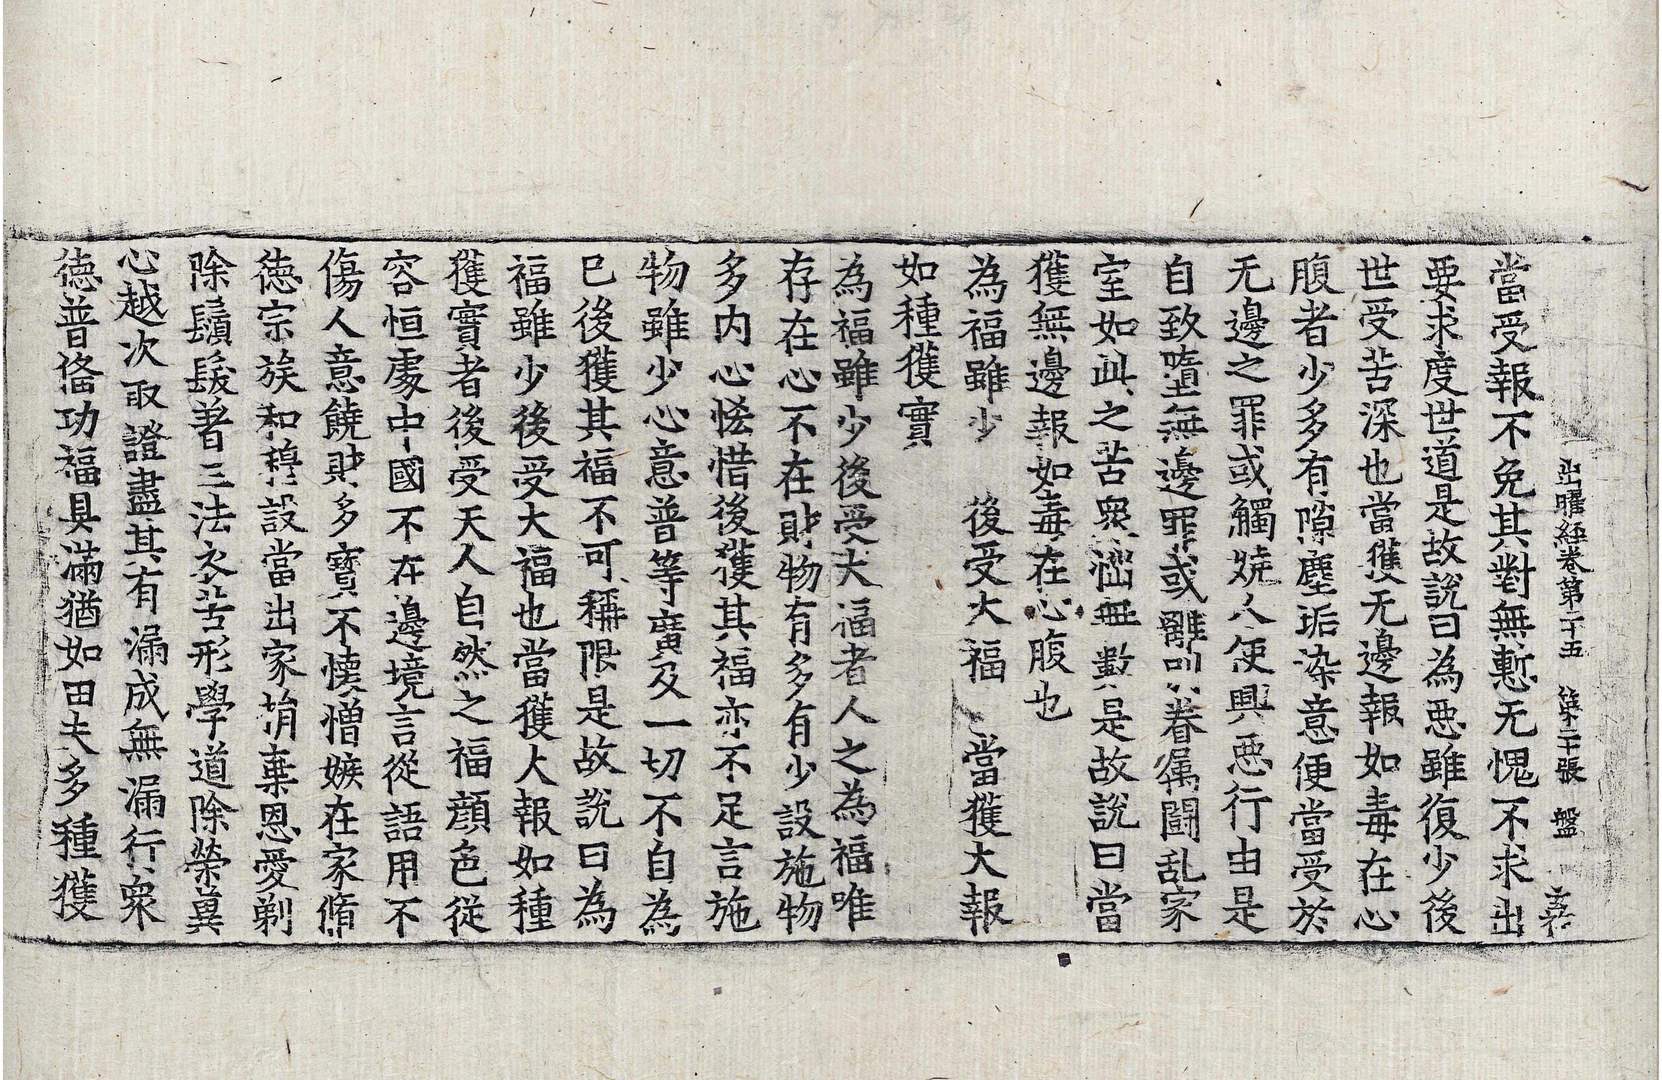 出曜経卷第二十五　第二十張　盤
當受報不免其對無慙无愧不求出
要求度世道是故說曰為惡雖復少後
世受苦深也當獲无邊報如毒在心
腹者少多有隙塵垢染意便當受於
无邊之罪或觸燒人便興惡行由是
自致墮無邊罪或離別眷属闘乱家
室如此之苦衆㳷無數是故說曰當
獲無邊報如毒在心腹也
為福雖少　後受大福　當獲大報
如種獲實
為福雖少後受大福者人之為福唯
存在心不在財物有多有少設施物
多内心悋惜後獲其福亦不足言施
物雖少心意普等廣及一切不自為
已後獲其福不可稱限是故說曰為
福雖少後受大福也當獲大報如種
獲實者後受天人自然之福顔色從
容恒處中國不在邊境言從語用不
傷人意饒財多寶不懐憎嫉在家脩
徳宗族和穆設當出家捐棄恩愛剃
除鬚髮著三法衣苦形學道除榮兾
心越次取證盡其有漏成無漏行衆
徳普俻功福具滿猶如田夫多種獲